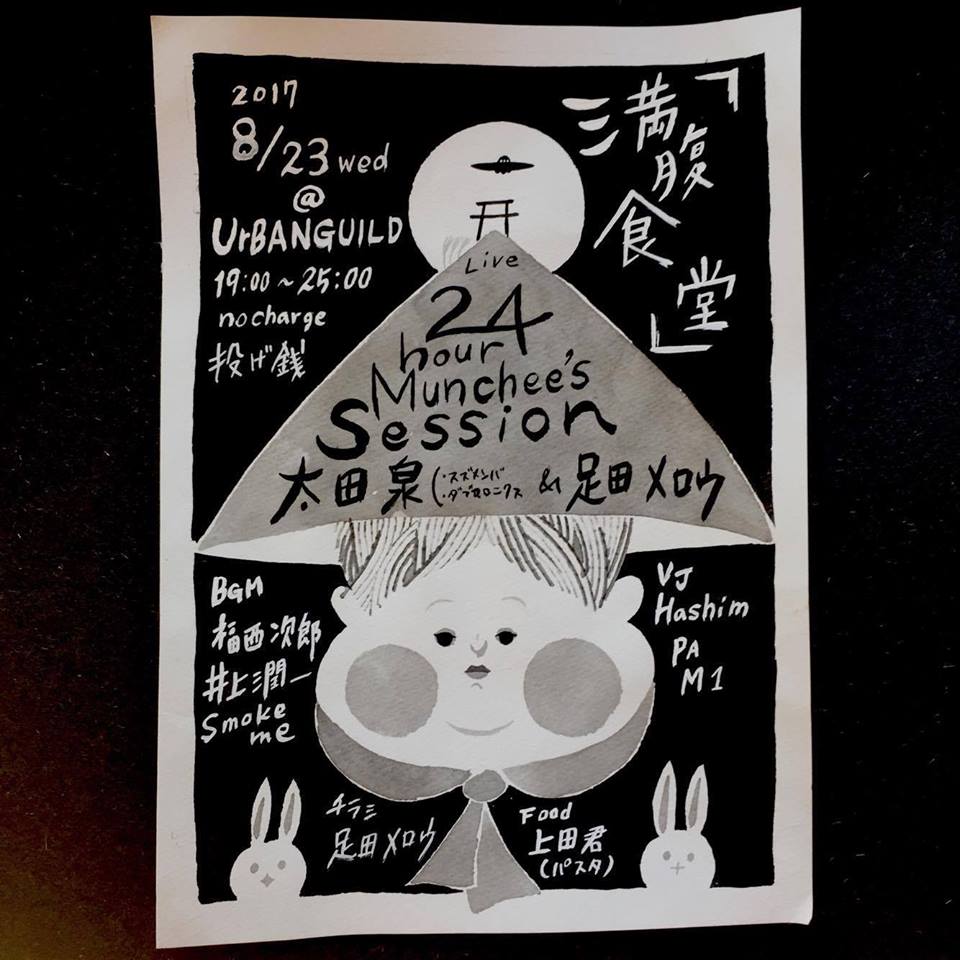 2017
8/23 wed
@
UrBANGUILD
19:00~25:00
no charge
投げ銭
「三満腹食堂」
Live
24
hour
Munchee's
Session
太田泉(・スズメンバ
・ダブモロニクス & 足田メロウ
BGM
福西次郎
井上潤一
Smoke
me
VJ
Hashim
PA
M1
チラシ
足田メロウ
Food
上田君
(パスタ)